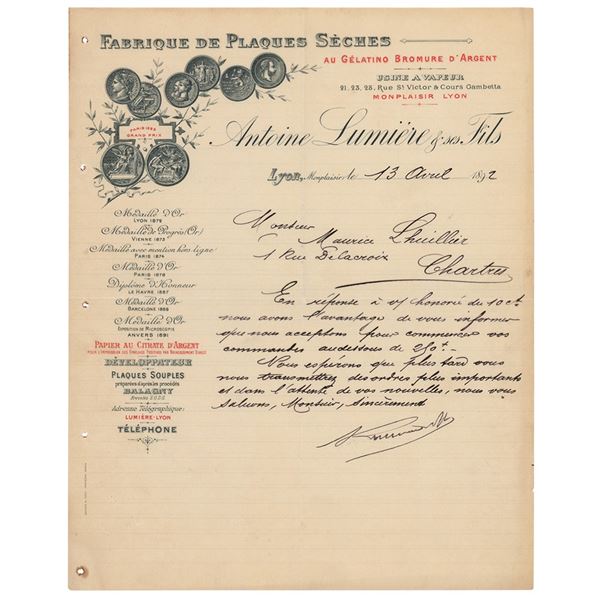 FABRIQUE DE PLAQUES SÈCHES
AU GÉLATINO BROMURE D'ARGENT
USINE A VAPEUR
21, 23, 25, Rue St Victor & Cours Gambetta
MONPLAISIR LYON
PARIS 1889
GRAND PRIX
Antoine Lumière & ses Fils
Lyon, Monplaisir le 13 Avril 1892
Médaille d'Or
LYON 1879
Médaille de Progrès (Or)
VIENNE 1873
Médaille avec mention hors ligne
PARIS 1874
Médaille d'Or
PARIS 1878
Diplôme d'Honneur
LE HAVRE 1887
Médaille d'Or
BARCELONE 1888
Médaille d'Or
EXPOSITION DE MICROSCOPIE
ANVERS 1891
PAPIER AU CITRATE D'ARGENT
POUR L'IMPRESSION DES ÉPREUVES POSITIVES PAR NOIRCISSEMENT DIRECT
DÉVELOPPATEUR
PLAQUES SOUPLES
préparées d'après les procédés
BALAGNY
Brevetés S.G.D.G.
Adresse Télégraphique:
LUMIÈRE-LYON
TÉLÉPHONE
Monsieur
Maurice Lhuillier
1 Rue Delacroix
Chartres
En réponse à v/ honoré du 10 ct
nous avons l'avantage de vous informer
que nous acceptons pour commencer vos
commandes au dessous de 250f.-
Nous espérons que plus tard vous
nous transmettrez des ordres plus importants
et dans l'attente de vos nouvelles, nous vous
saluons, Monsieur, sincèrement